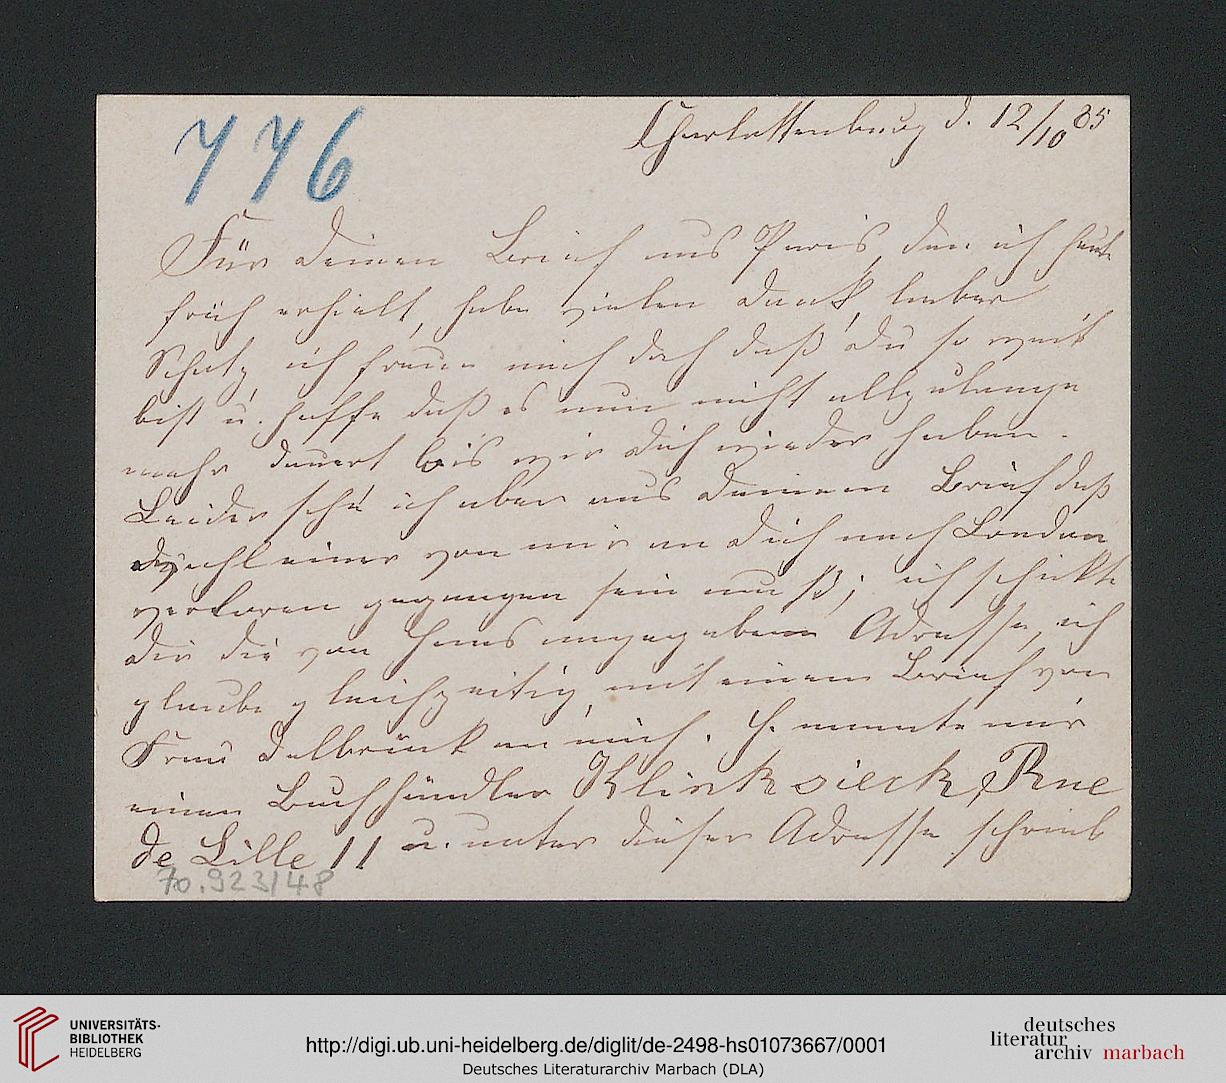 776
Charlottenburg d. 12/10 85
Für deinen Brief aus Paris, den ich heute
früh erhielt, habe vielen Dank, lieber
Schatz, ich freue mich doch daß du so weit
bist u. hoffe daß es nun nicht allzulange
mehr dauert bis wir dich wieder haben.
Leider sehe ich aber aus deinem Brief daß
wohl einer von mir an dich nach London
verloren gegangen sein muß; ich schickte
dir die von Hans angegebene Adresse, ich
glaube gleichzeitig mit einem Brief von
Frau Delbrück an mich. H. nannte mir
einen Buchhändler Klinksieck, Rue
de Lille 11 u. unter dieser Adresse schrieb
70.923/48
UNIVERSITÄTS-
BIBLIOTHEK
HEIDELBERG
http://digi.ub.uni-heidelberg.de/diglit/de-2498-hs01073667/0001
Deutsches Literaturarchiv Marbach (DLA)
deutsches
literatur
archiv marbach